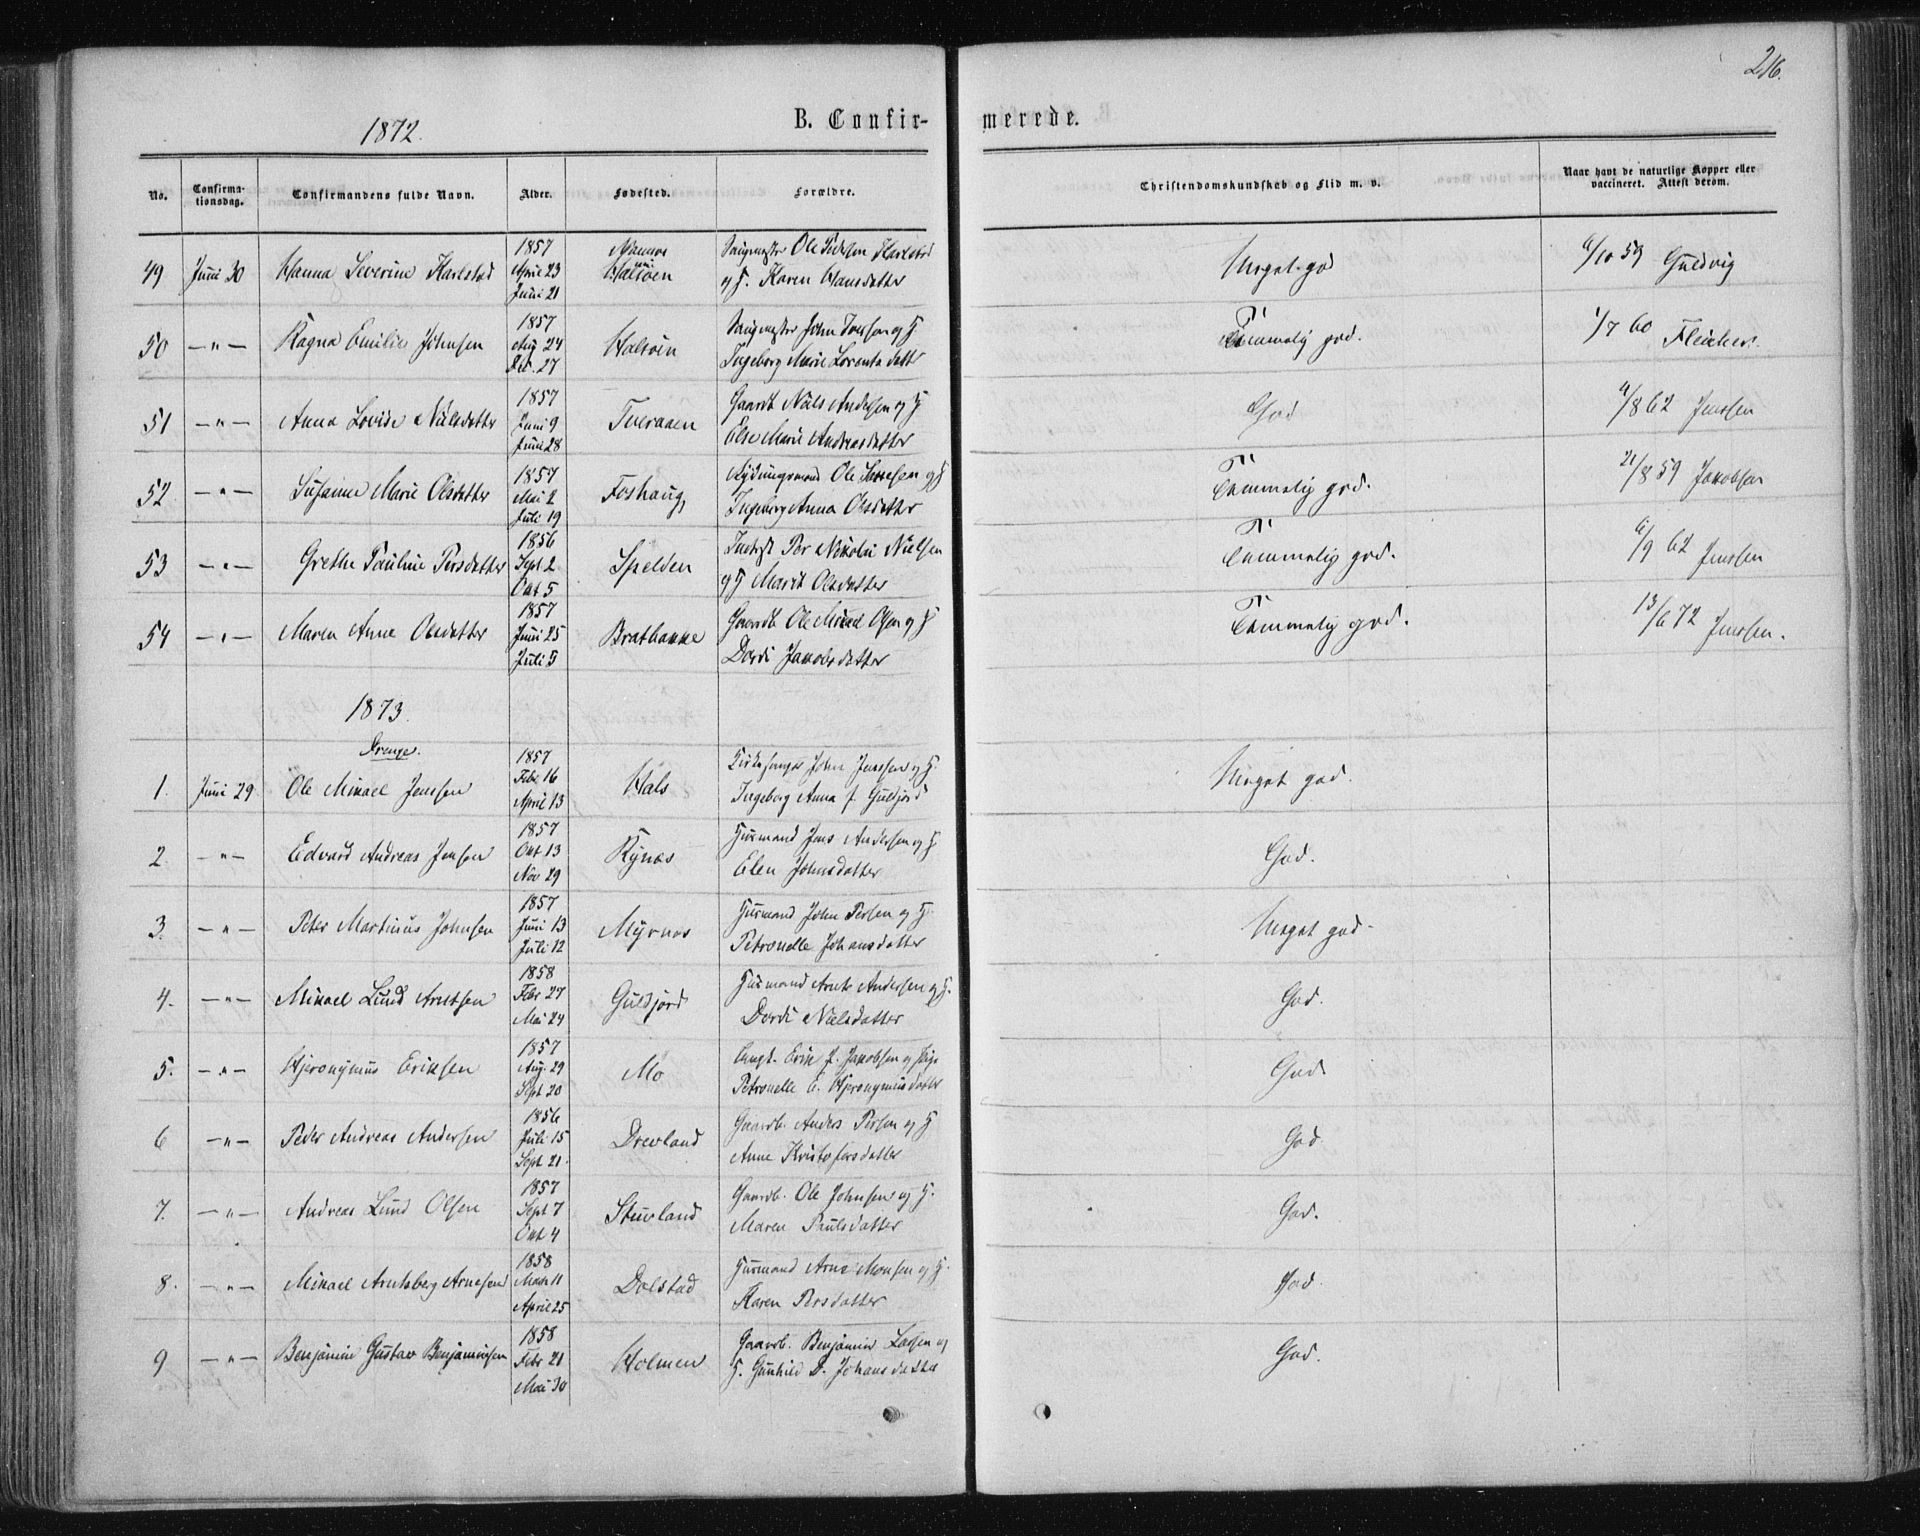 216.
1872.
B. Confir-
merede.
No.
Confirma-
tionsdag.
Confirmandens fulde Navn.
Alder.
Fødested.
Forældre.
Christendomskundskab og Flid m. v.
Naar havt de naturlige Kopper eller
vaccineret. Attest derom.
49 Juni 30 Hanna Severine Karlstad 1857 April 23 Juni 21 Halsøen
Ole Pedersen Karlstad
og H. Karen Hansdatter
Meget god 6/10 59 Guldvig
50 -"- Ragna Emilie Johnsen 1857 Aug 24 Dec. 27 Halsøen
John Iversen og H
Ingeborg Marie Lorentsdatt
Temmelig god. 1/7 60 Fleischer.
51 -"- Anna Lovise Nilsdatter 1857 Juni 9 Juni 28 Tveraaen
Gaardb Nils Andersen og H
Else Marie Andreasdatter
God 4/8 62 Jenssen
52 -"- Susanne Marie Olsdatter 1857 Mai 2 Juli 19 Foshaug
Rydningsmand Ole Larsen og H
Ingeborg Anna Olsdatter
Temmelig god. 21/8 59 Jakobsen
53 -"- Grethe Pauline Persdatter 1856 Sept 2 Okt 5 Spelden
Inderst Per Nikolai Nielsen
og H Marit Olsdatter
Temmelig god. 6/9 62 Jenssen
54 -"- Maren Anne Olsdatter 1857 Juni 25 Juli 5 Bratbakke
Gaardb Ole Mikal Olsen og H
Dordi Jakobsdatter
Temmelig god. 13/6 72 Jenssen.
1873.
Drenge.
1. Juni 29 Ole Mikael Jenssen 1857 Febr 16 April 13 Hals
Kirkesanger John Jenssen og H.
Ingeborg Anna f. Guldfjord
Meget god.
2. -"- Edvard Andreas Jensen 1857 Okt 13 Nov 29 Rynes
Husmand Jens Andersen og H
Elen Johnsdatter
God.
3. -"- Peter Martinus Johnsen 1857 Juni 13 Juli 12 Myrnes
Husmand John Persen og H.
Petronelle Johansdatter
Meget god.
4. -"- Mikael Lund Arntsen 1858 Febr 27 Mai 24 Guldfjord
Husmand Arnt Andersen og H.
Dordi Nielsdatter
God.
5. -"- Hjeronymus Eriksen 1857 Aug. 29 Sept 20 Mo
Ungk. Erik P. Jakobsen og Pige
Petronelle E. Hjeronymusdatter
God
6 -"- Peder Andreas Andersen 1856 Juli 15 Sept 21. Drevland
Gaardb. Anders Persen og H
Anne Kristofersdatter
God
7. -"- Andreas Lund Olsen 1857 Sept 7 Okt 4 Stuvland
Gaardb. Ole Johnsen og H.
Maren Paulsdatter
God.
8. -"- Mikael Arntsberg Arnesen 1858 Marts 11 April 25 Dolstad
Husmand Arne Monsen og H.
Karen Persdatter
God.
9 -"- Benjamin Gustav Benjaminsen 1858 Febr 21 Mai 30 Holmen
Gaardb. Benjamin Larsen og
H. Gunhild D. Johansdatter
God.